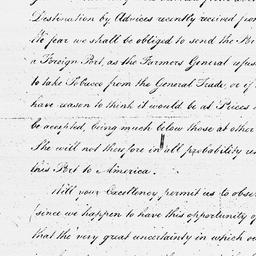 Destination by Advices recently recieved from
We fear we shall be obliged to send the
a Foreign Port, as the Farmers General refuse
to take Tobacco from the General Trade, or if
have reason to think it would be at Prices
be accepted, being much below those at other
She will not therefore in all probability
this Port to America.
Will your Excellency permit us to
since we happen to have this opportunity of
that the very great uncertainty in which